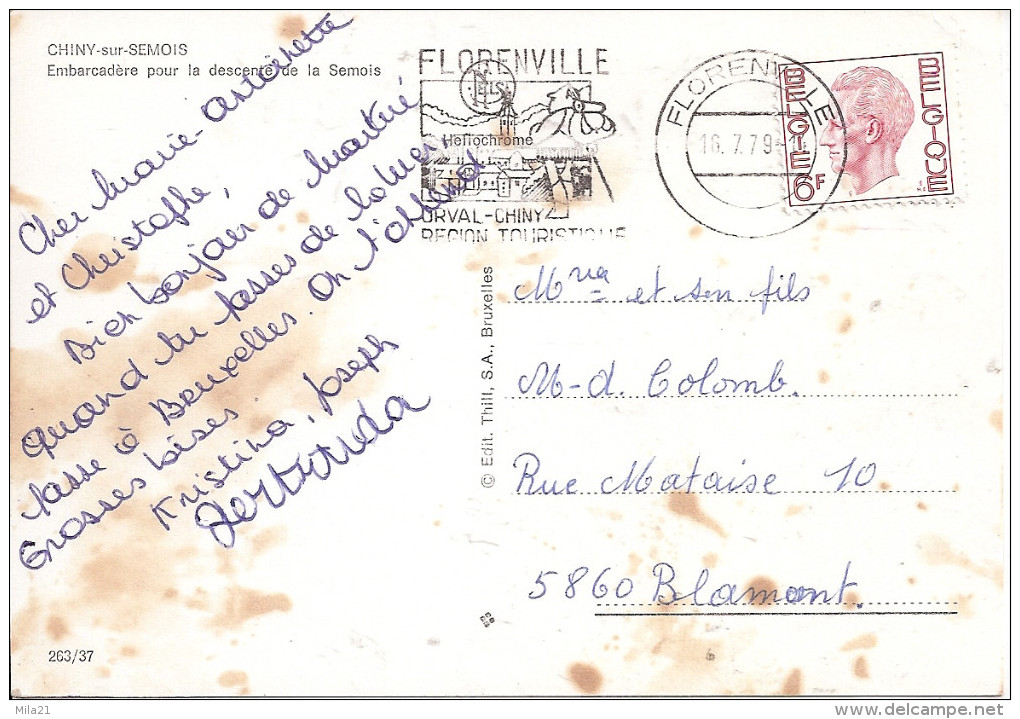 CHINY-sur-SEMOIS
Embarcadère pour la descente de la Semois
Cher Marie-Antoinette
et Christophe,
Bien bonjour de
quand tu passes de
passe à Bruxelles. On t'
Grosses bises
Kristina, Joseph
FLORENVILLE
NELS
Heliochrome
ORVAL-CHINY
REGION TOURISTIQUE
FLORENVILLE
16.7.79-1
BELGIE BELGIQUE
6F
© Edit. Thill, S.A., Bruxelles
et son fils
M-d. Colomb.
Rue Mataise 10
5860 Blamont.
263/37
Mila21
delcampe.net